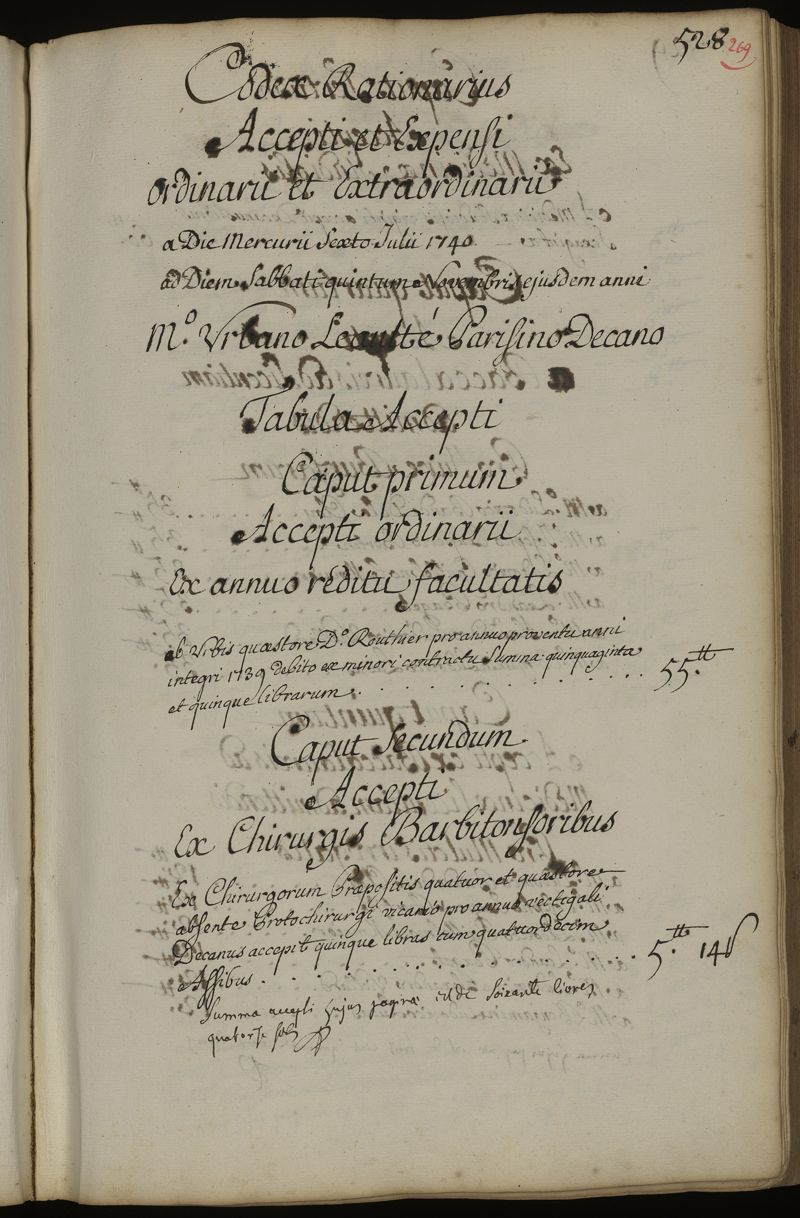 528
269
Codex Rationarius
Accepti et Expensi
ordinarii et Extraordinarii
a Die Mercurii Sexto Julii 1740
ad Diem Sabbati quintum Novembris ejusdem anni
M.º Urbano Leautté Parisino Decano
Tabula Accepti
Caput primum
Accepti ordinarii
Ex annuo reditu facultatis
ab Urbis quæstore D.º Routhier pro annuo proventu anni
integri 1739 debito ex minori contractu Summa quinquaginta
et quinque librarum . . . . . . . . . . . . 55.tt
Caput Secundum
Accepti
Ex Chirurgis Barbitonsoribus
Ex Chirurgorum Præpositis quatuor et quæstore
absente Protochirurgi vicario pro annuo vectigali
Decanus accepit quinque libras cum quatuor decem
Assibus . . . . . . . . . . . . 5.tt 14 s
Summa accepti hujus paginæ est de Soixante livres
quatorze sols